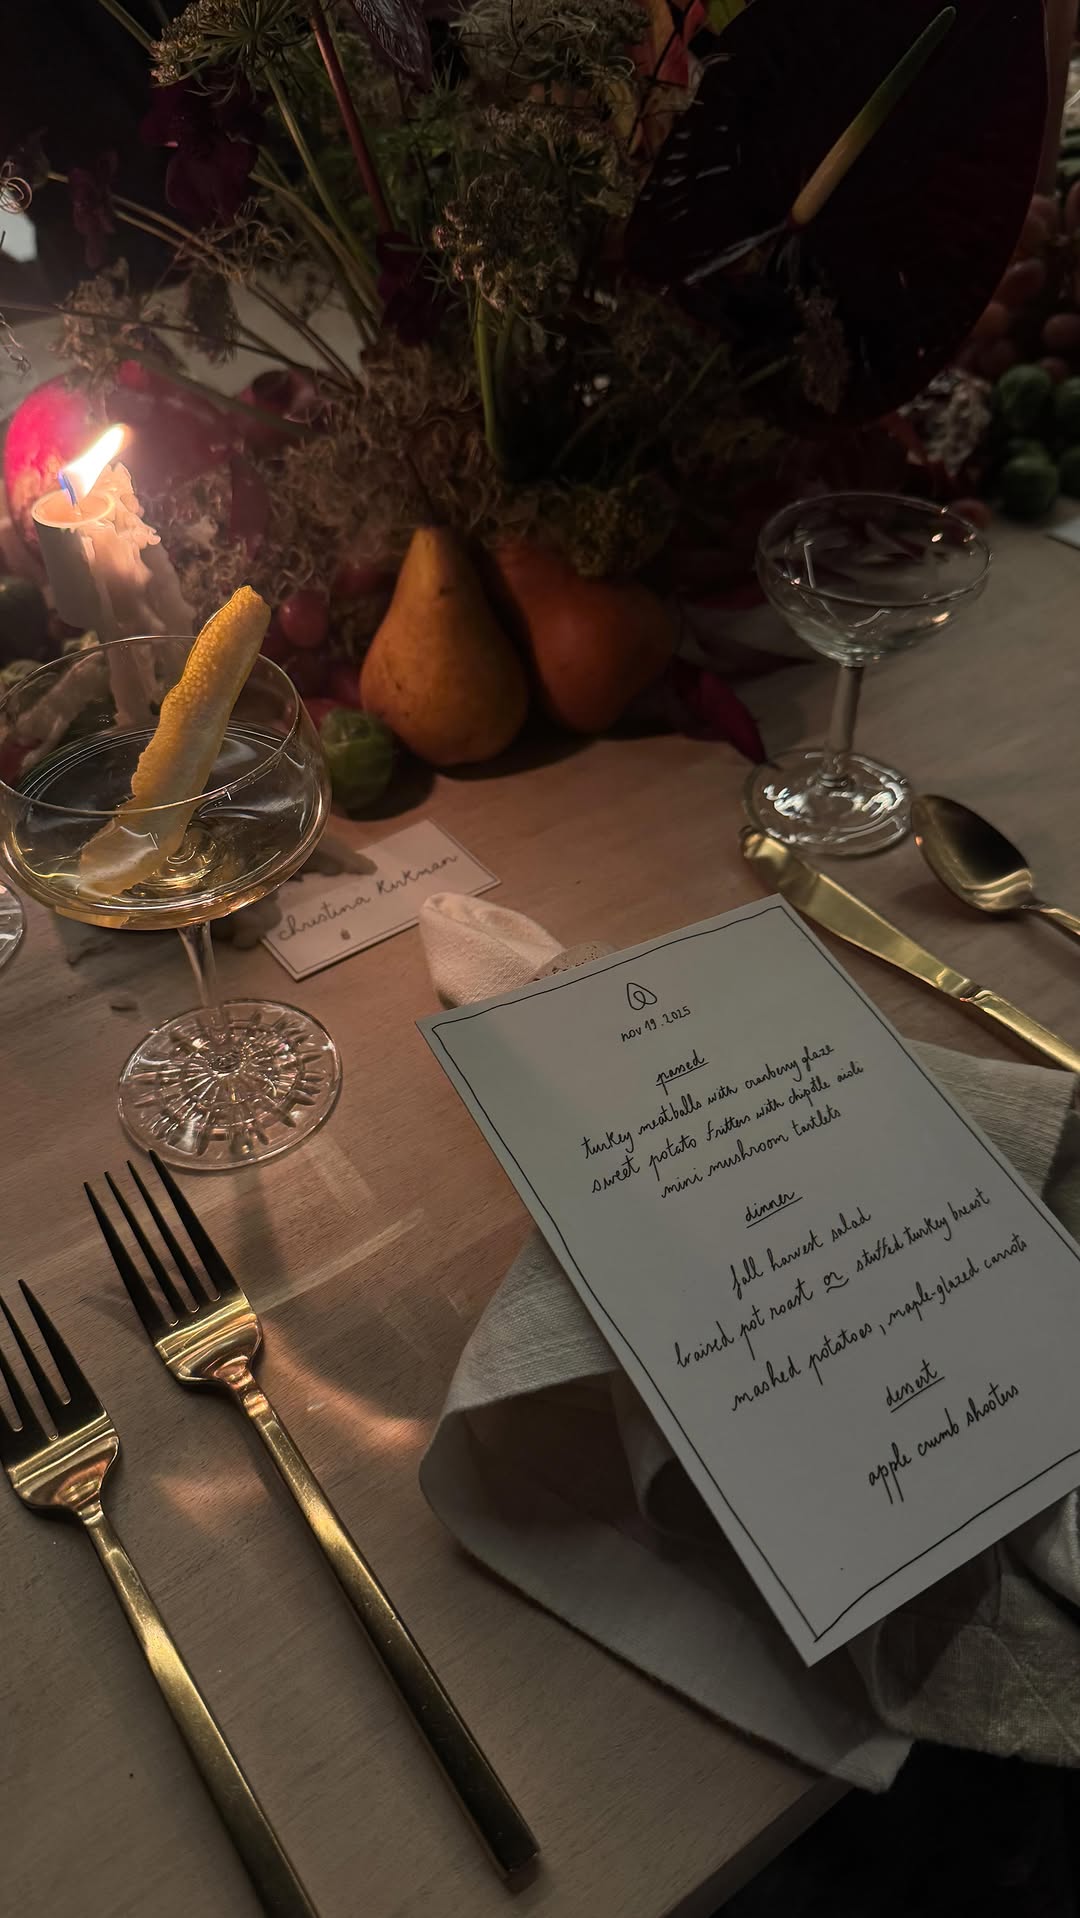 christina Kirkman
nov 19. 2025
passed
turkey meatballs with cranberry glaze
sweet potato fritters with chipotle aioli
mini mushroom tartlets
dinner
fall harvest salad
braised pot roast or stuffed turkey breast
mashed potatoes, maple-glazed carrots
dessert
apple crumb shooters